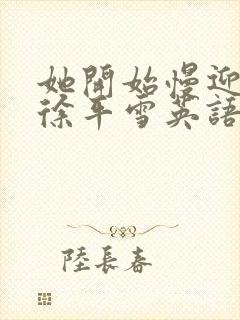 她開始慢迎
徐平雪英語
陸長春